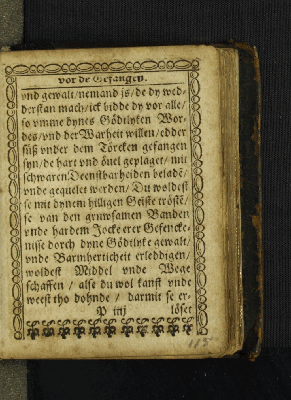 vor de Gefangen.
vnd gewalt / nemand is / de dy wed-
derstan mach / ick bidde dy vor alle /
so vmme dynes Gödtlyken Wor-
des / vnd der Warheit willen / edder
süß vnder dem Törcken gefangen
syn / de hart vnd öuel geplaget / mit
schwaren Deenstbarheiden beladē /
vnde gequelet werden / Du woldest
se mit dynem hilligen Geiste tröstē /
se van den gruwsamen Banden
vnde hardem Jocke erer Gefencke-
nisse dorch dyne Gödtlyke gewalt /
vnde Barmherticheit erleddigen /
woldest Middel vnde Wege
schaffen / alse du wol kanst vnde
weest tho dohnde / darmit se er-
P inj löset
115